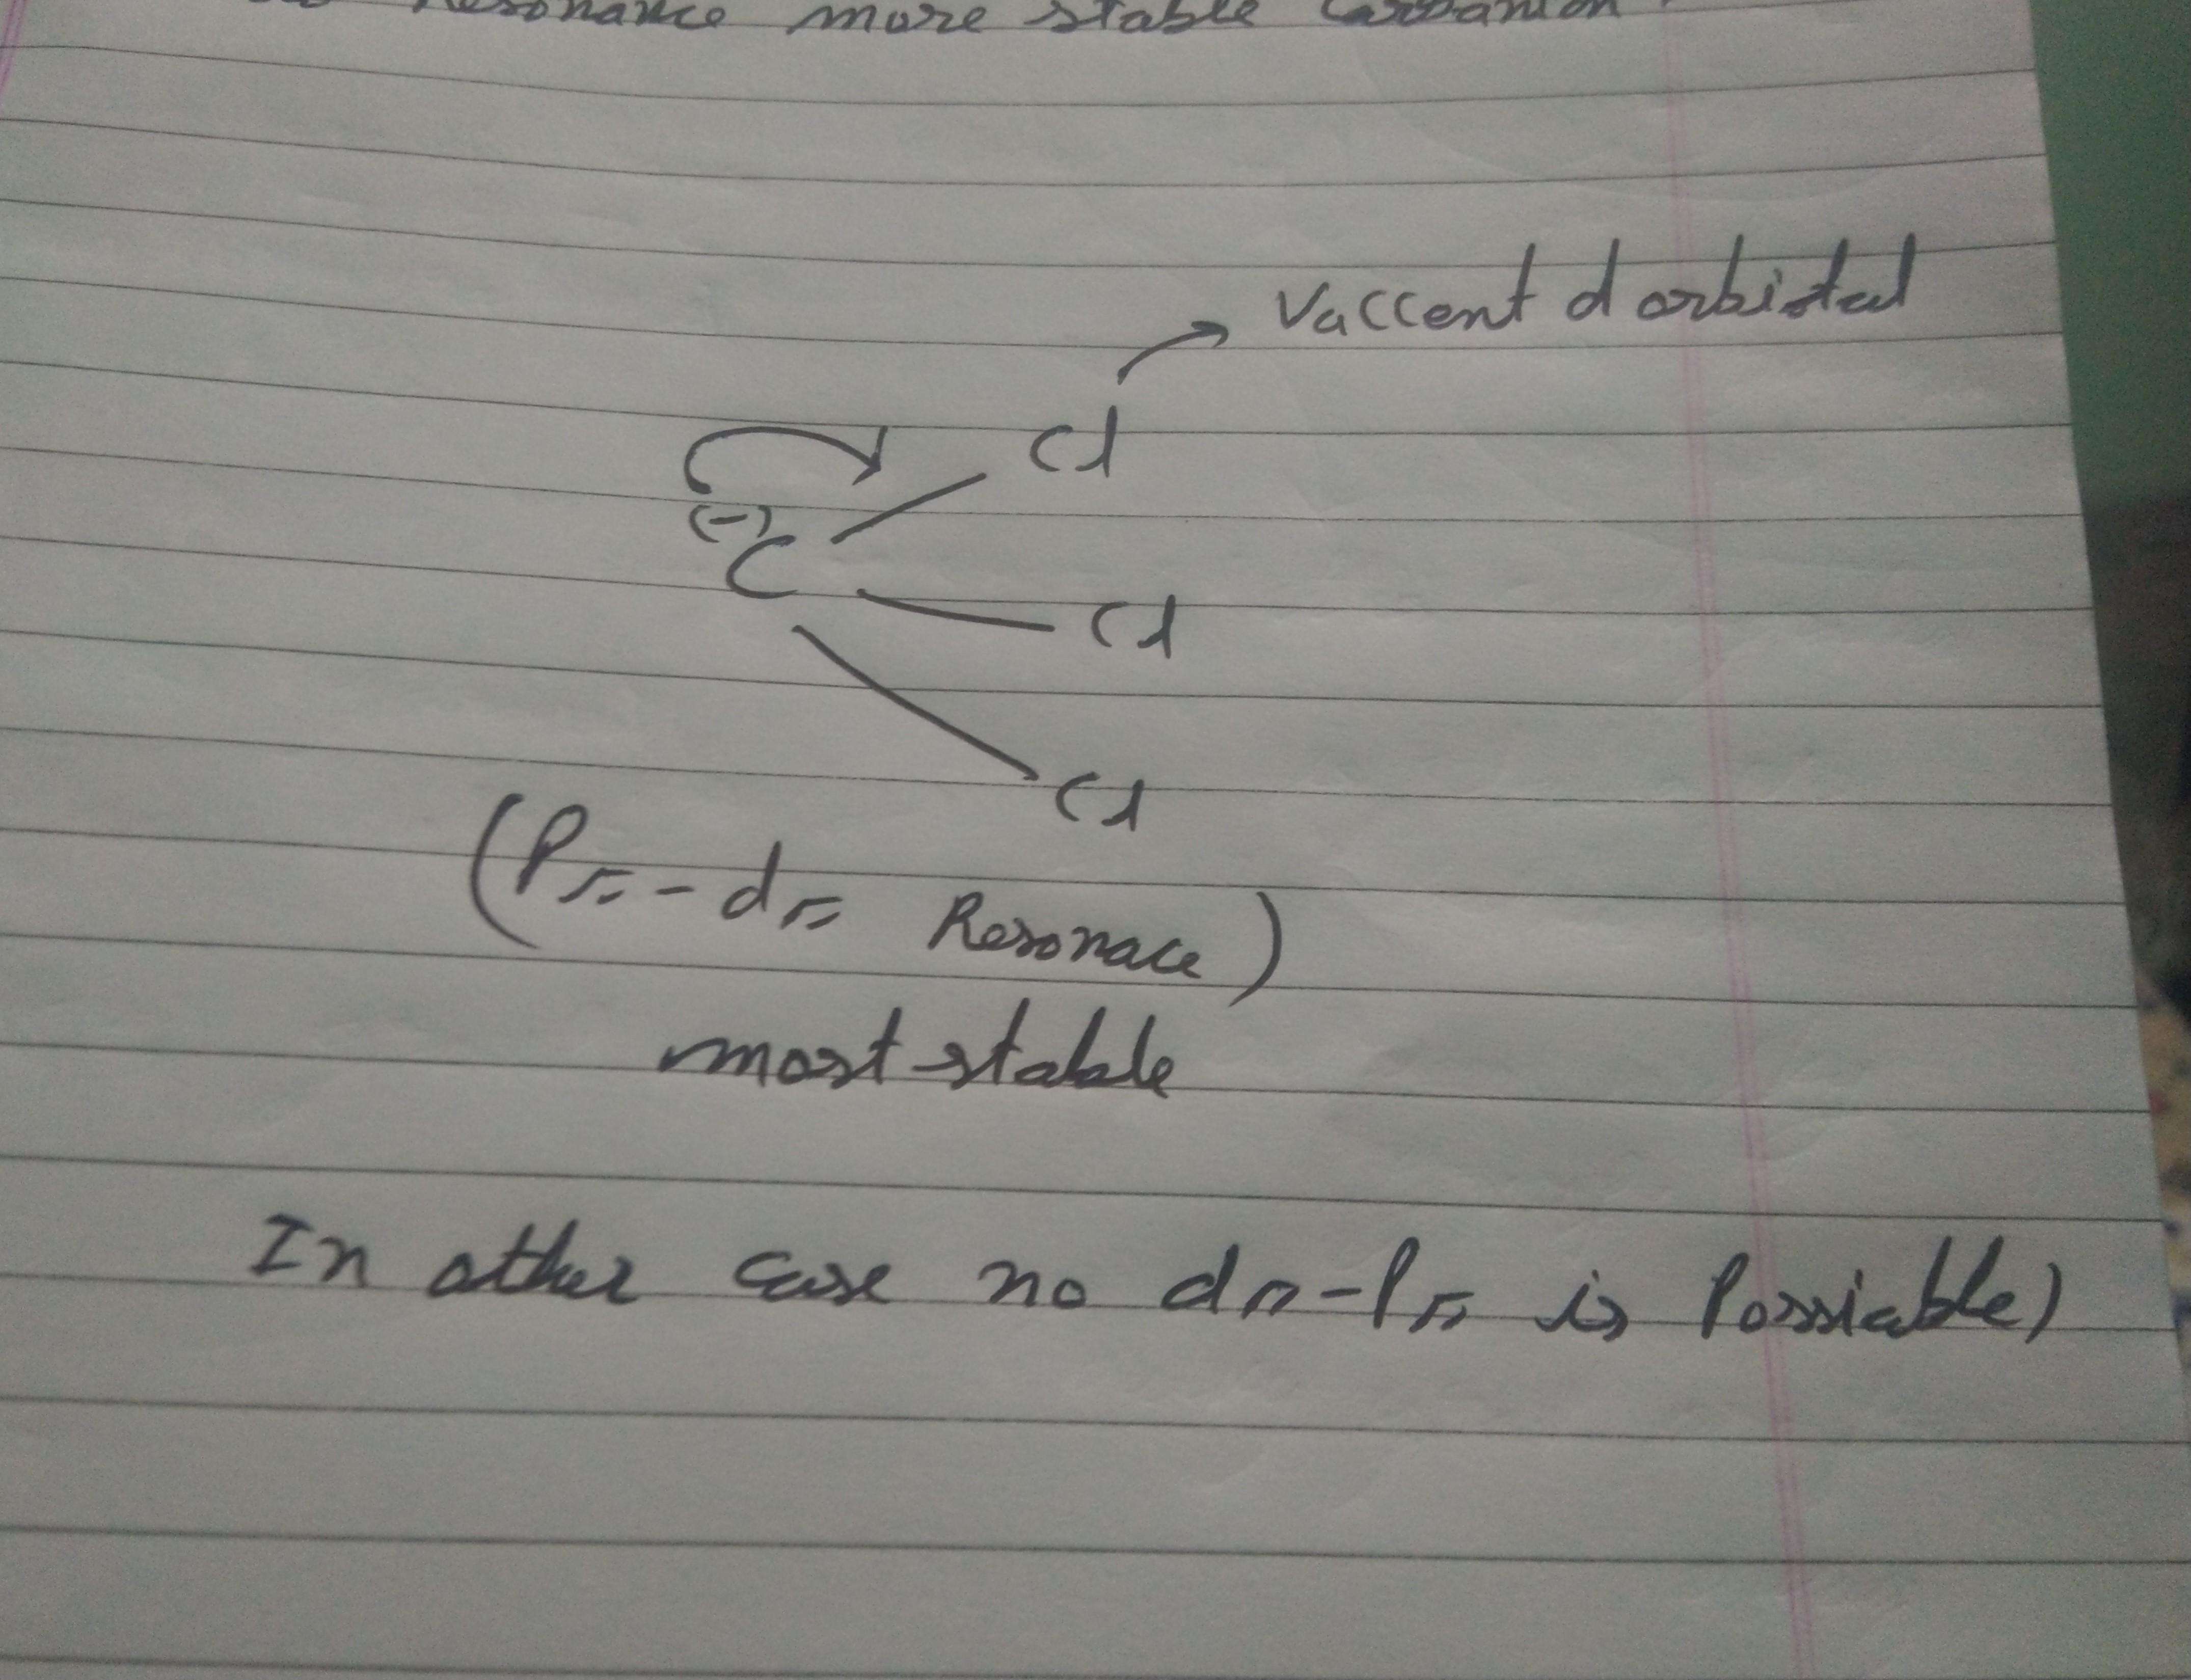 Resonance more stable carbanion
Vaccent d orbital
Cl
(-)
C
Cl
Cl
(Pπ-dπ Resonace)
most stable
In other case no dπ-Pπ is Possiable)